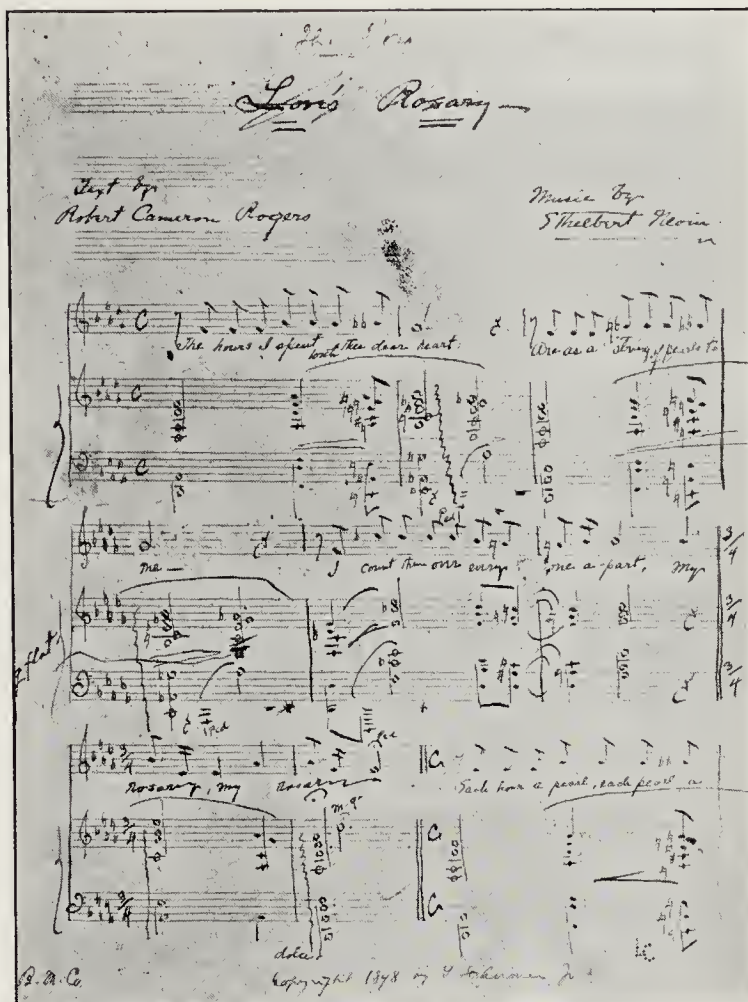 The
Love's Rosary
Text by
Robert Cameron Rogers
Music by
Ethelbert Nevin
The hours I spent with thee dear heart.
Are as a string of pearls to
Ped
me —
I count them over every one a part, my
flat
Ped
Ped
Rosary, my rosary
Each hour a pearl, each pearl a
m.g.
dolce
B. M. Co.
Copyright 1898 by G Schirmer Jr